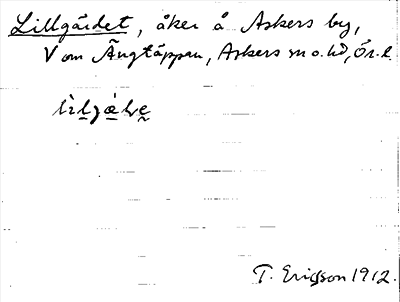 Lillgärdet, åker å Askers by,
V om Ängtäppan, Askers sn o. hd, Ör. l.
T. Ericsson 1912.